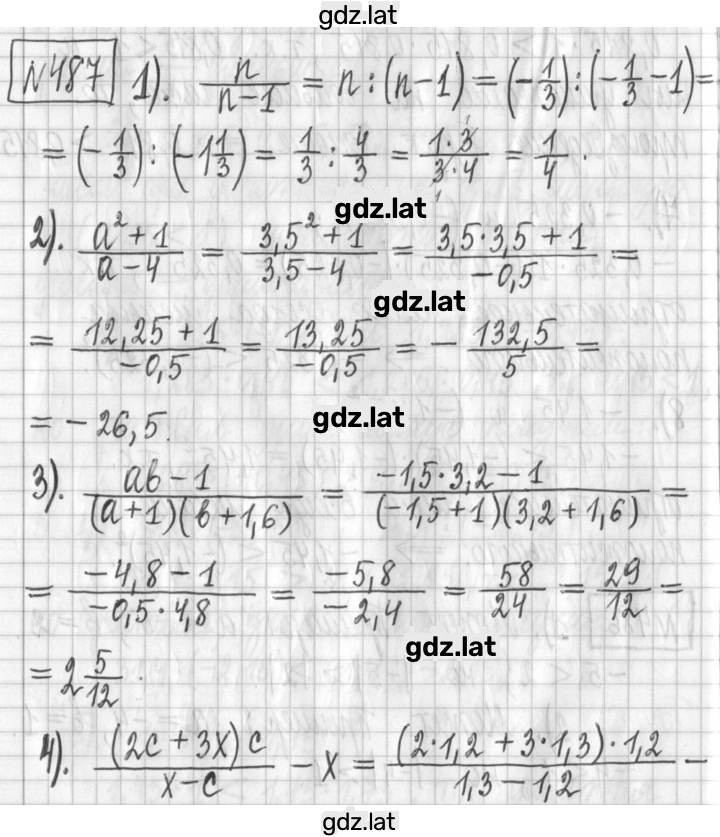 gdz.lat
№487 1). n/(n-1) = n : (n-1) = (-1/3) : (-1/3 - 1) =
= (-1/3) : (-1 1/3) = 1/3 : 4/3 = (1·3)/(3·4) = 1/4.
gdz.lat
2). (a²+1)/(a-4) = (3,5²+1)/(3,5-4) = (3,5·3,5+1)/(-0,5) =
gdz.lat
= (12,25+1)/(-0,5) = 13,25/(-0,5) = - 132,5/5 =
= -26,5.
gdz.lat
3). (ab-1)/((a+1)(b+1,6)) = (-1,5·3,2-1)/((-1,5+1)(3,2+1,6)) =
= (-4,8-1)/(-0,5·4,8) = (-5,8)/(-2,4) = 58/24 = 29/12 =
gdz.lat
= 2 5/12.
4). ((2c+3x)c)/(x-c) - x = ((2·1,2+3·1,3)·1,2)/(1,3-1,2) -
gdz.lat